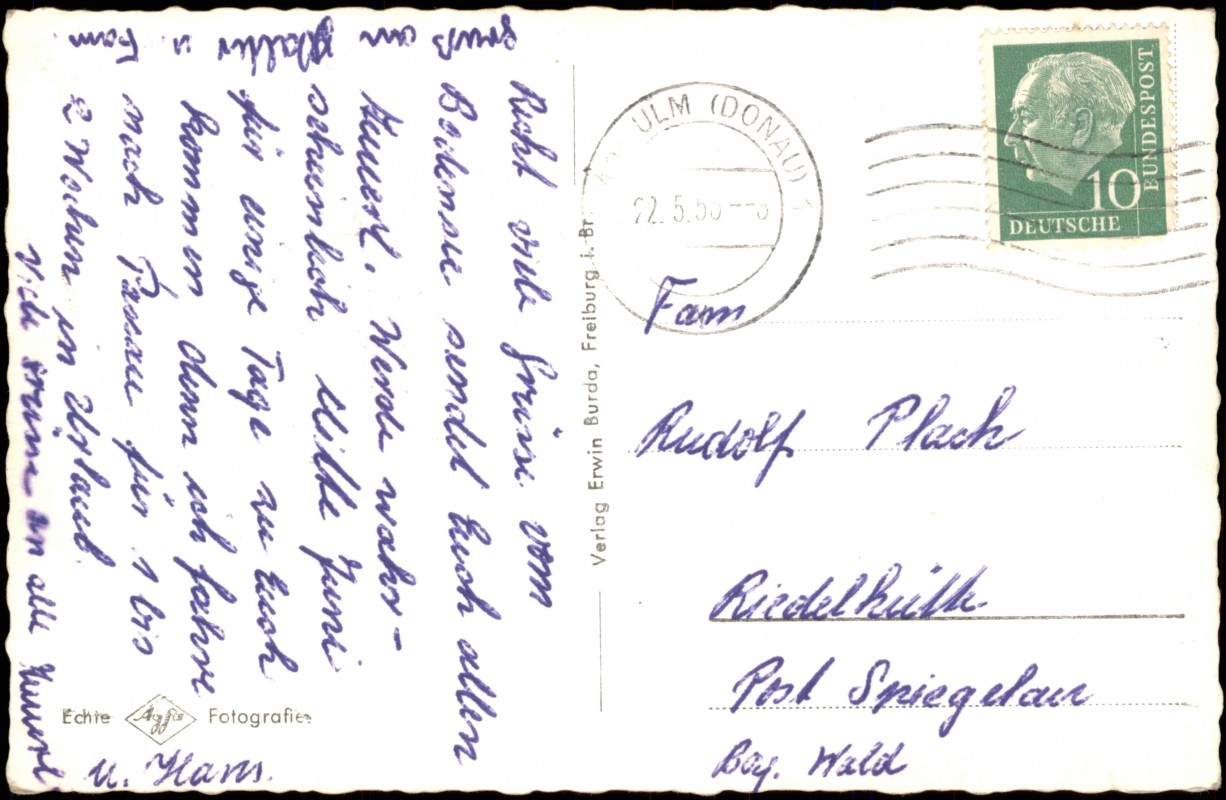 Recht viele Grüsse vom
Bodensee sendet Euch allen
Heuerl. Werde wahr-
scheinlich Mitte Juni
für einige Tage zu Euch
kommen denn ich fahre
nach Passau für 1 bis
2 Wochen in Urlaub.
Viele Grüsse an alle Heuerl
u. Hans.
Gruß an Walter u. Fam
Echte Agfa Fotografie
Verlag Erwin Burda, Freiburg i. Br.
ULM (DONAU) 1
22.5.
10
DEUTSCHE
BUNDESPOST
Fam
Rudolf Plach
Riedelhütte
Post Spiegelau
Bay. Wald